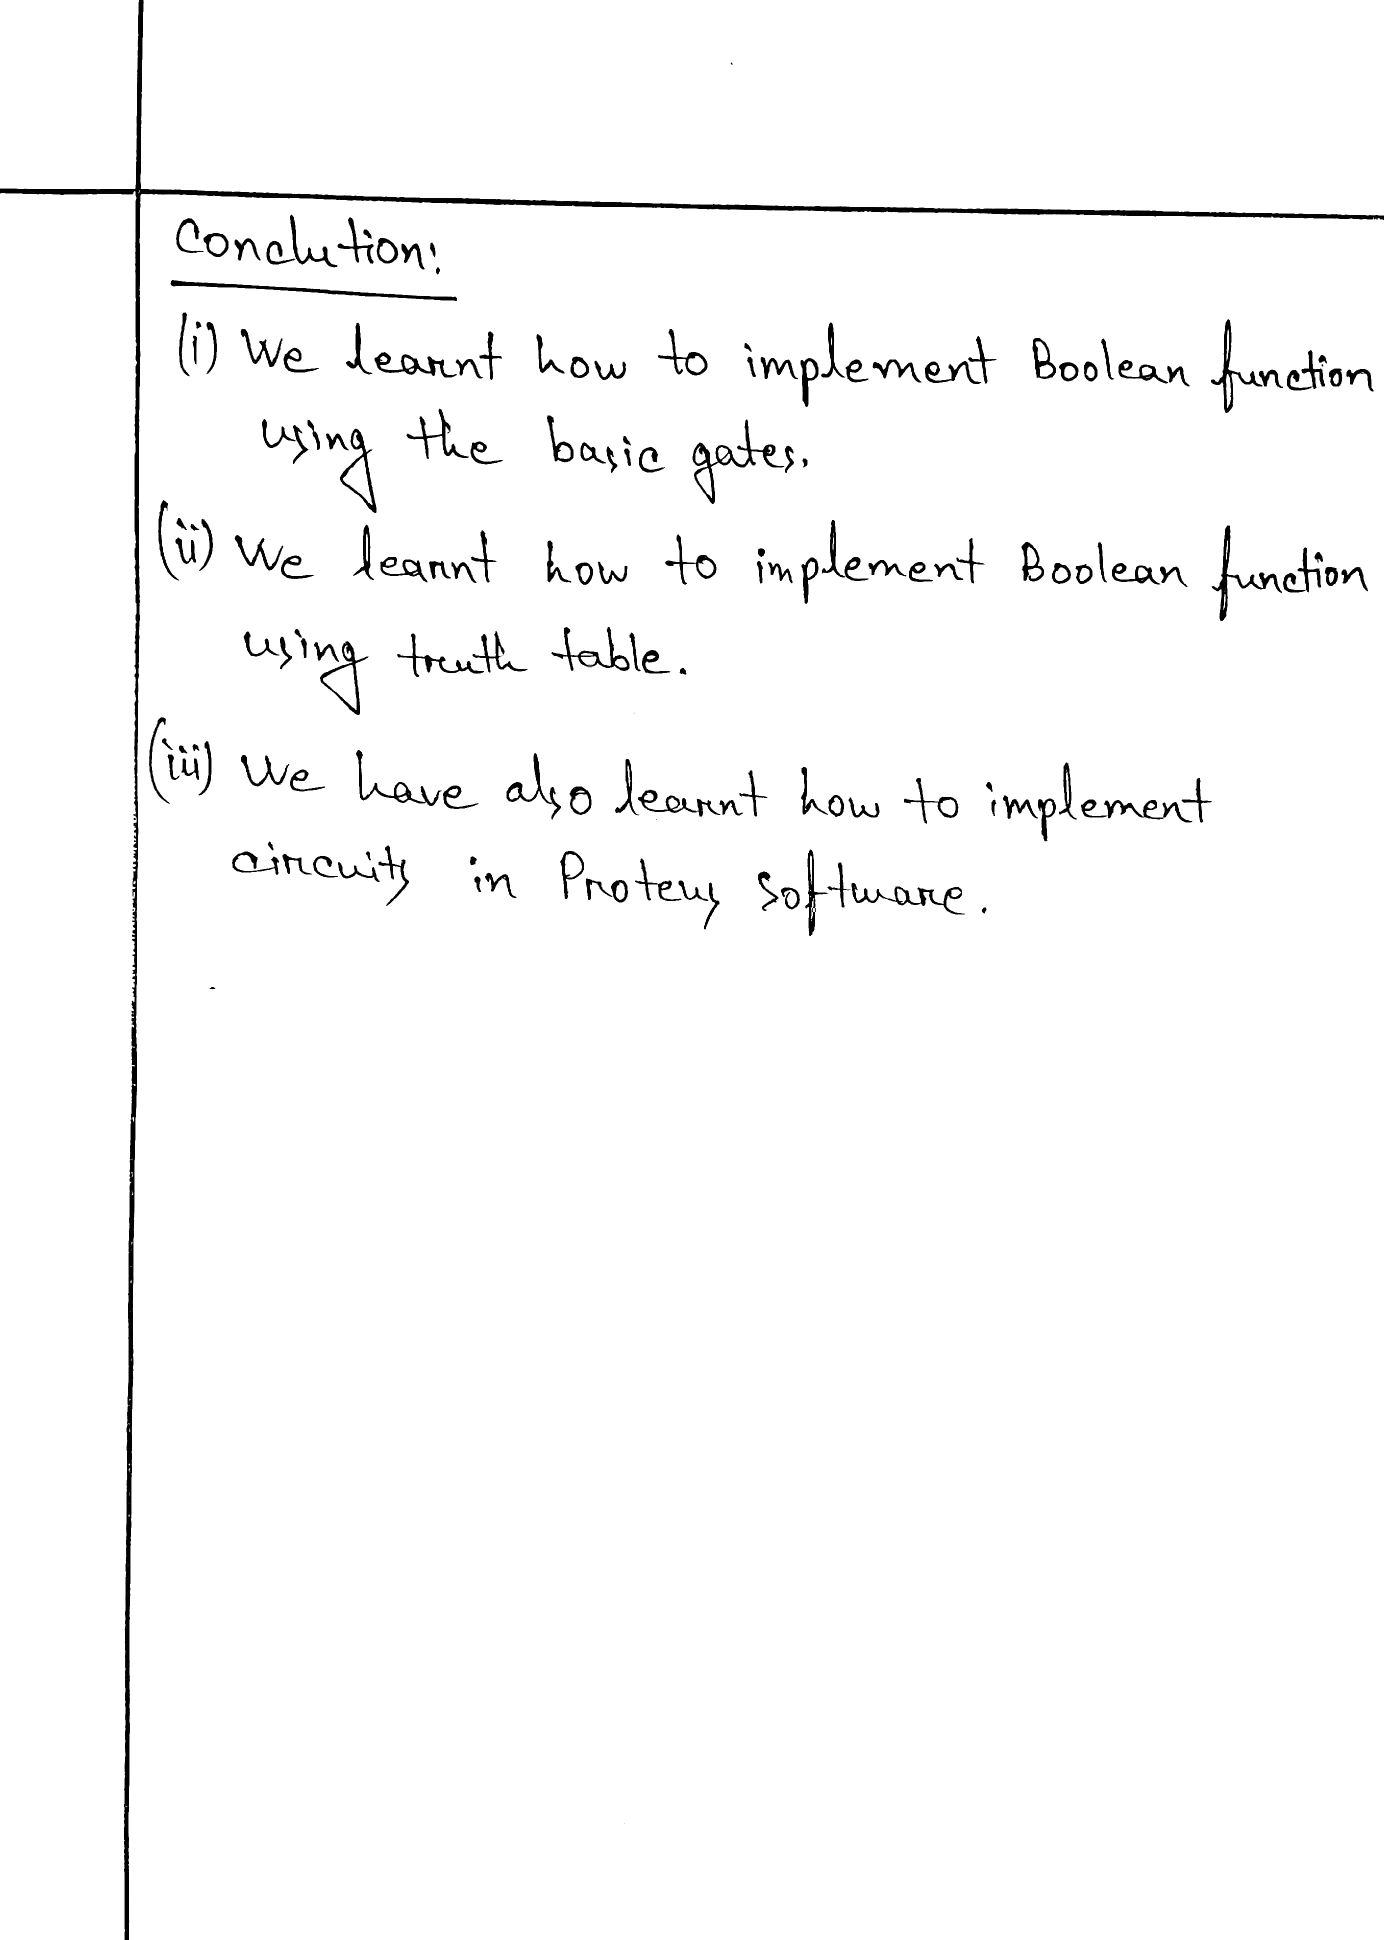 Conclution:
(i) We learnt how to implement Boolean function
using the basic gates.
(ii) We learnt how to implement Boolean function
using truth table.
(iii) We have also learnt how to implement
circuits in Proteus software.